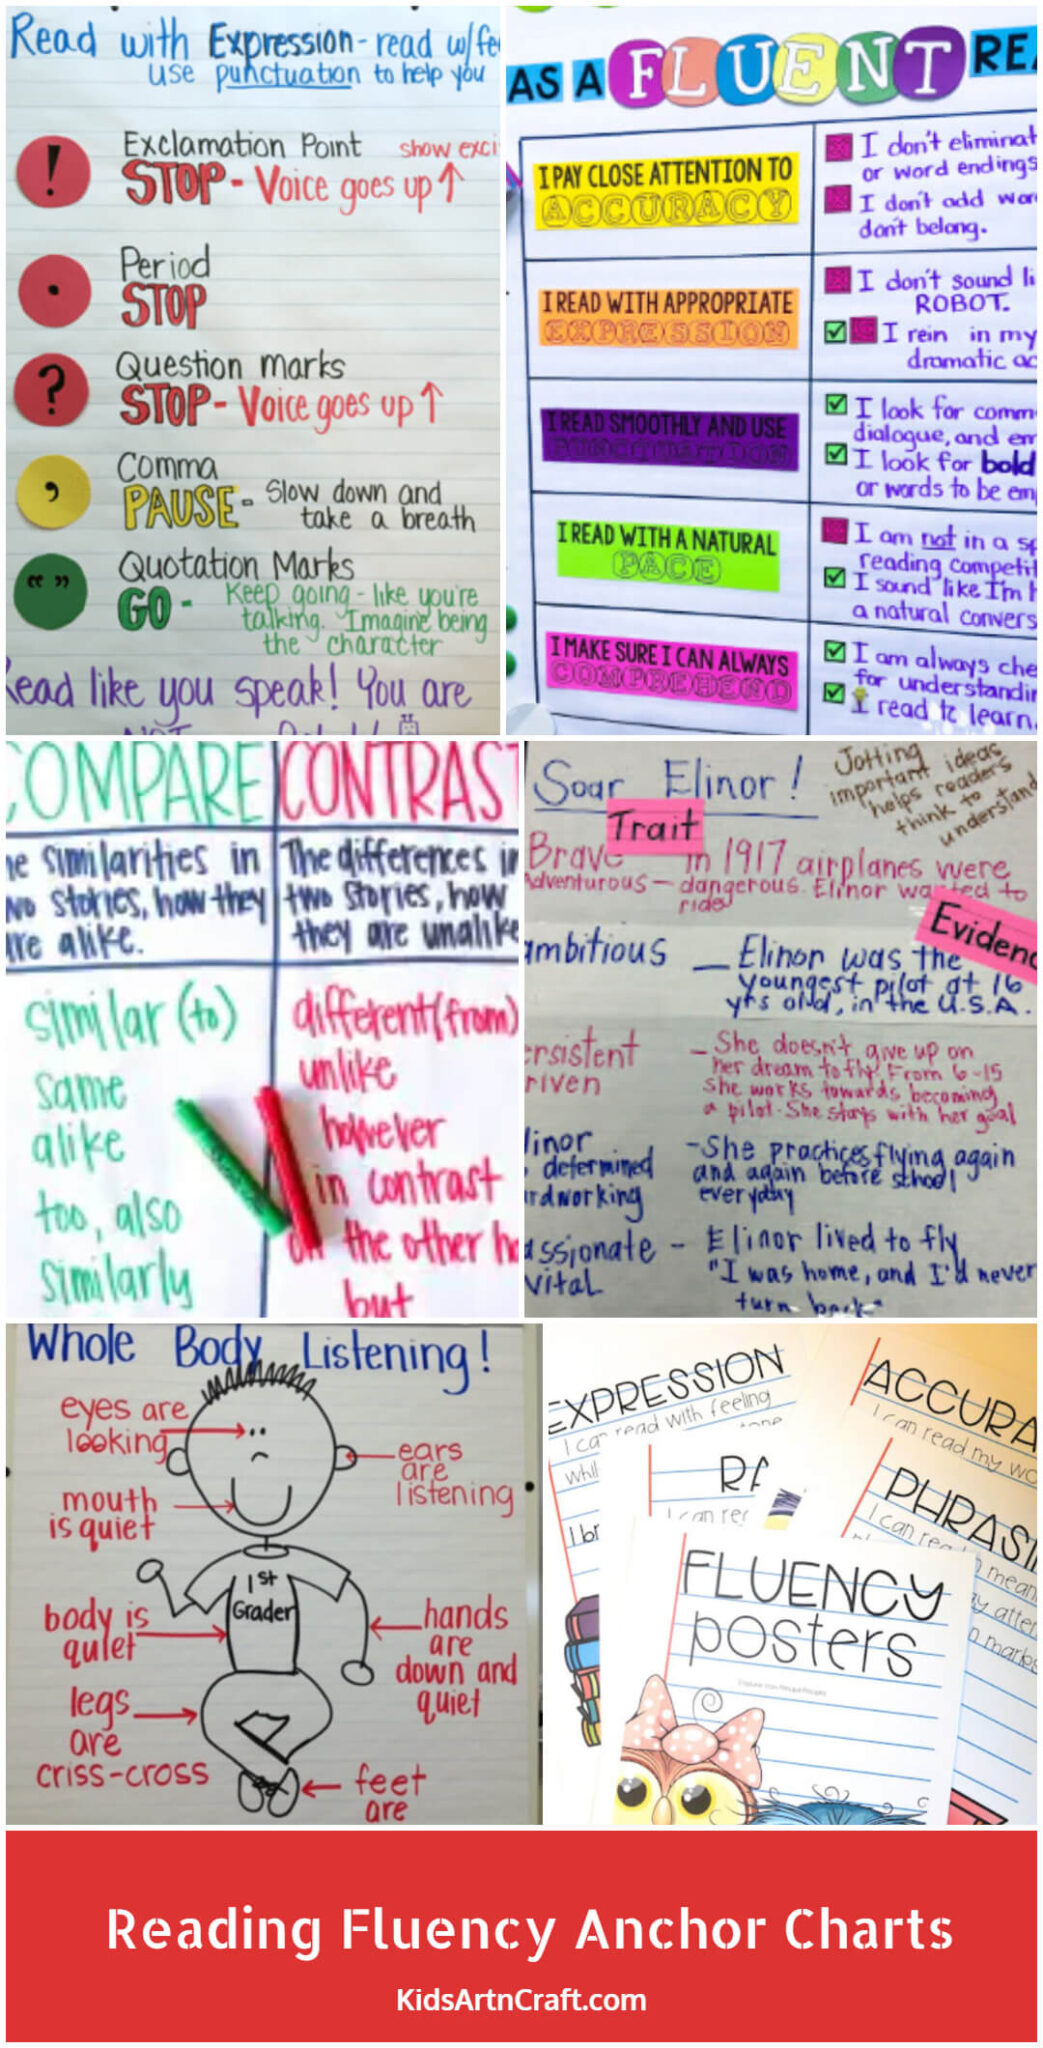 Read with Expression - read w/fe
use punctuation to help you
!
Exclamation Point show exci
STOP - Voice goes up ↑
.
Period
STOP
?
Question marks
STOP - Voice goes up ↑
,
Comma
PAUSE - Slow down and
take a breath
“ ”
Quotation Marks
GO - Keep going - like you're
talking. Imagine being
the character
Read like you speak! You are
NOT
AS A FLUENT REA
I PAY CLOSE ATTENTION TO
ACCURACY
I don't eliminat
or word endings
I don't add wor
don't belong.
I READ WITH APPROPRIATE
EXPRESSION
I don't sound li
ROBOT.
I rein in my
dramatic ac
I READ SMOOTHLY AND USE
PUNCTUATION
I look for comm
dialogue, and em
I look for bold
or words to be em
I READ WITH A NATURAL
PACE
I am not in a sp
reading competit
I sound like I'm h
a natural convers
I MAKE SURE I CAN ALWAYS
COMPREHEND
I am always che
for understandin
I read to learn.
COMPARE CONTRAST
he similarities in
wo stories, how they
are alike.
The differences in
two stories, how
they are unalike
similar (to)
same
alike
too, also
similarly
different (from)
unlike
however
in contrast
on the other h
but
Soar Elinor!
Jotting
important ideas
helps readers
think to
understand
Trait
Brave
Adventurous - In 1917 airplanes were
dangerous. Elinor wanted to
ride
Evidenc
ambitious - Elinor was the
youngest pilot at 16
yrs old, in the U.S.A.
ersistent
riven
- She doesn't give up on
her dream to fly. From 6-15
she works towards becoming
a pilot. She stays with her goal
linor
determined
ardworking
- She practices flying again
and again before school
everyday
assionate - Elinor lived to fly
vital
"I was home, and I'd never
turn back"
Whole Body Listening!
eyes are
looking
ears
are
listening
mouth
is quiet
1st
Grader
body is
quiet
hands
are
down and
quiet
legs
are
criss-cross
feet
are
EXPRESSION
I can read with feeling
whil
tone
I br
ACCURA
I can read my wo
RA
I can rec
PHRASI
I can rea
mean
ay atten
n marks
FLUENCY
posters
Reading Fluency Anchor Charts
KidsArtnCraft.com